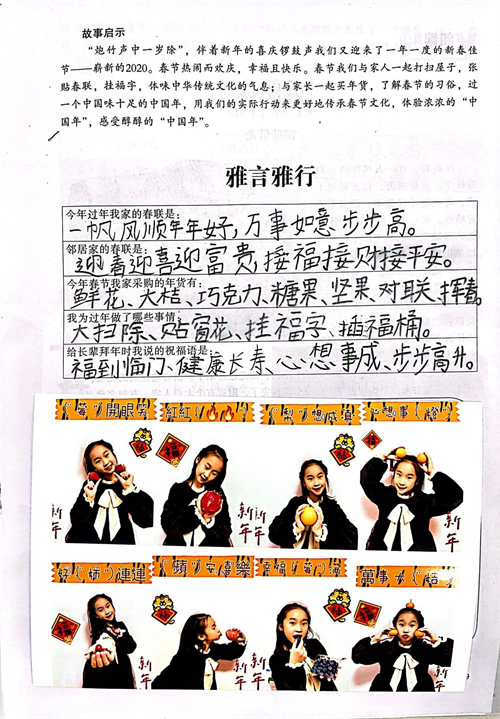 故事启示
“炮竹声中一岁除”，伴着新年的喜庆锣鼓声我们又迎来了一年一度的新春佳
节——崭新的2020。春节热闹而欢庆，幸福且快乐。春节我们与家人一起打扫屋子，张
贴春联，挂福字，体味中华传统文化的气息；与家长一起买年货，了解春节的习俗，过
一个中国味十足的中国年，用我们的实际行动来更好地传承春节文化，体验浓浓的“中
国年”，感受醇醇的“中国年”。
雅言雅行
今年过年我家的春联是：
一帆风顺年年好，万事如意步步高。
邻居家的春联是：
迎春迎喜迎富贵，接福接财接平安。
今年春节我家采购的年货有：
鲜花、大桔、巧克力、糖果、坚果、对联、挥春。
我为过年做了哪些事情：
大扫除、贴窗花、挂福字、插福桶。
给长辈拜年时我说的祝福语是：
福到临门、健康长寿、心想事成、步步高升。
莓 開眼笑 紅紅 梨 想感值 心想事 橙
新年 新年 新年 新年
好 柿 連連 蘋 安喜樂 幸福 莓 萬事 桔
新年 新年 新年